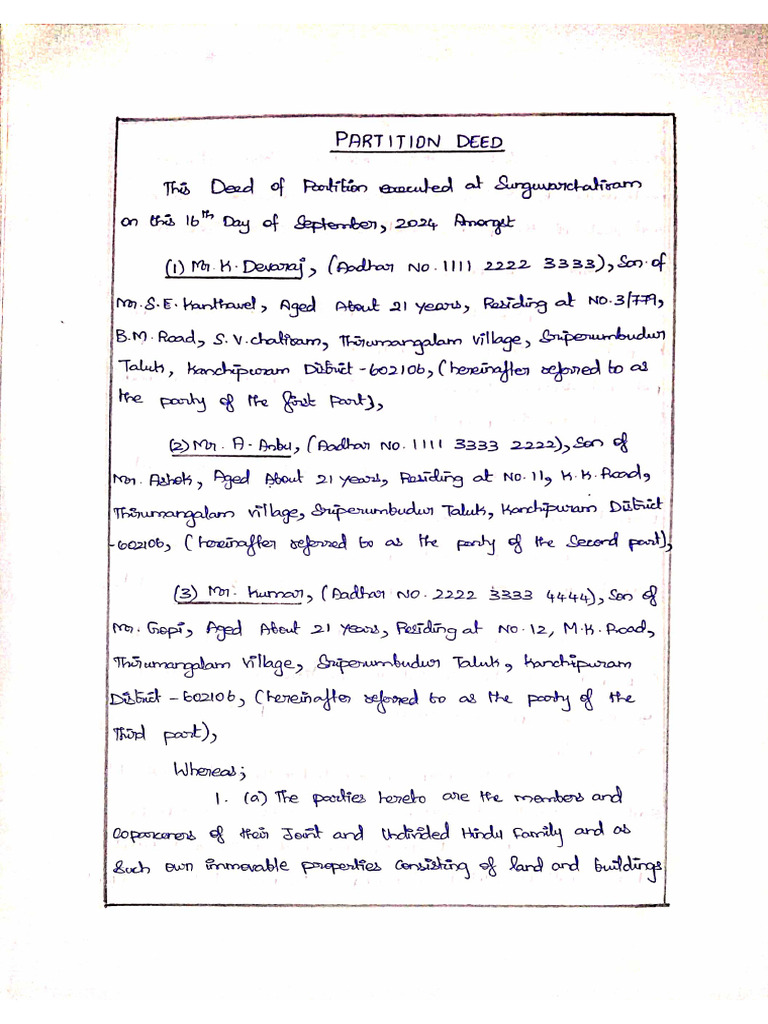 PARTITION DEED
This Deed of Partition executed at Sunguvarchatiram
on this 16th Day of September, 2024 Amongst
(1) Mr. K. Devaraj, (Aadhar No. 1111 2222 3333), Son of
Mr. S.E. Kanthavel, Aged About 21 years, Residing at No. 3/779,
B.M. Road, S.V. Chatiram, Thirumangalam Village, Sriperumbudur
Taluk, Kanchipuram District - 602106, (hereinafter referred to as
the party of the first Part),
(2) Mr. A. Anbu, (Aadhar No. 1111 3333 2222), Son of
Mr. Ashok, Aged About 21 years, Residing at No. 11, K.K. Road,
Thirumangalam Village, Sriperumbudur Taluk, Kanchipuram District
-602106, (hereinafter referred to as the party of the Second part),
(3) Mr. Kumar, (Aadhar No. 2222 3333 4444), Son of
Mr. Gopi, Aged About 21 years, Residing at No. 12, M.K. Road,
Thirumangalam Village, Sriperumbudur Taluk, Kanchipuram
District - 602106, (hereinafter referred to as the party of the
Third part),
Whereas;
1. (a) The parties hereto are the members and
Coparceners of their Joint and Undivided Hindu Family and as
Such own immovable properties Consisting of land and buildings